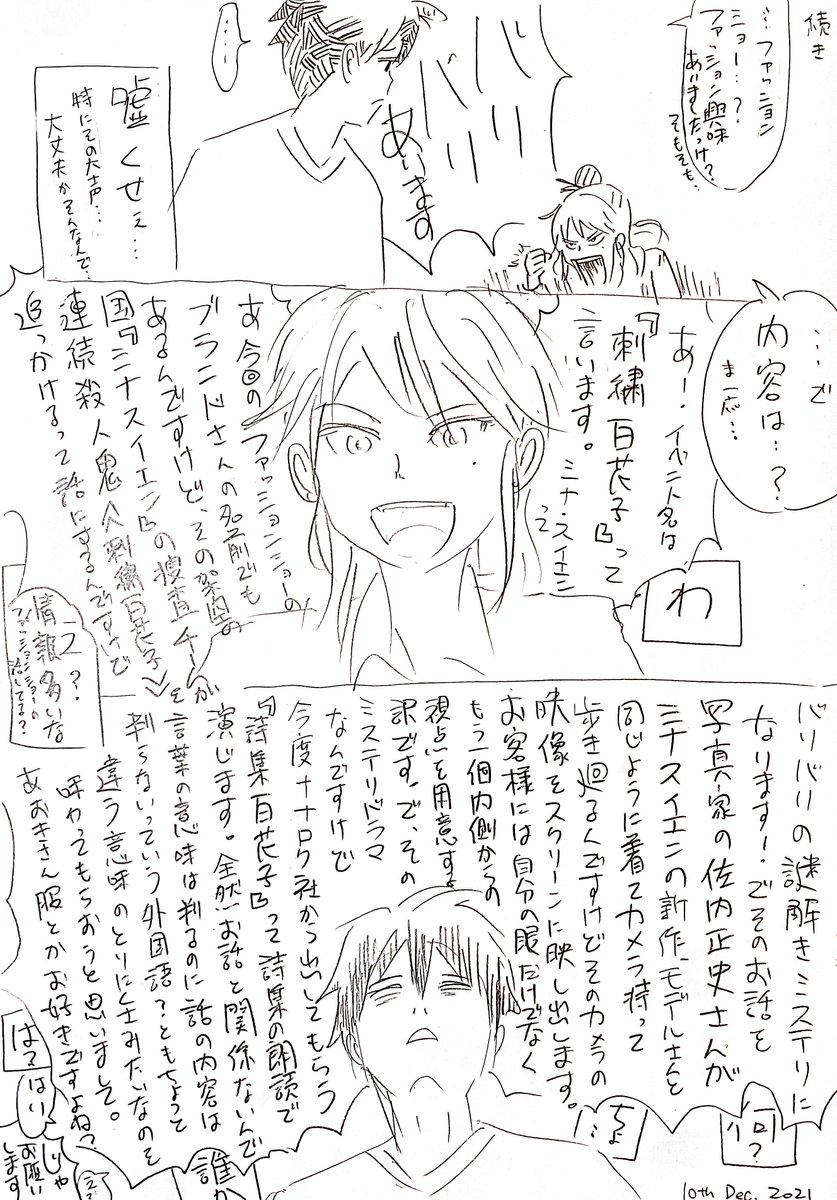 続き
…ファッション
ショー…?
ファッション興味
ありましたっけ?
そもそも…
バリバリ
あります
……
嘘くせぇ…
特にその大声…
大丈夫かそんなんで…
…で
内容は…?
ま一応…
あー、イベント名は
『刺繍百花子』って
言います。
ミナ・スイエンって
わ
あ今回のファッションショーの
ブランドさんの名前でも
あるんですけど、その架空の
国『ミナスイエン』の捜査チームが
連続殺人鬼〈刺繍百花子〉を
追っかけるって話にするんですけど
え?
情報多いな
ファッションショーの
話してる?
バリバリの謎解きミステリに
なります!でそのお話を
写真家の佐内正史さんが
ミナスイエンの新作、モデルさんと
同じように着てカメラ持って
歩き廻るんですけどそのカメラの
映像をスクリーンに映し出します。
お客様には自分の眼だけでなく
もう一個内側からの
視点を用意する
訳です。で、その
ミステリドラマ
なんですけど
今度ナナロク社から出してもらう
『詩集百花子』って詩集の朗読で
演じます。全然お話と関係ないんで
言葉の意味は判るのに話の内容は
判らないっていう外国語?ともちょっと
違う意味のとりこぼしみたいなのを
味わってもらおうと思いまして。
あおきさん服とかお好きですよね?
何?
ちょ…
誰か
は?
はい
じゃ
お願い
します
10th Dec. 2021